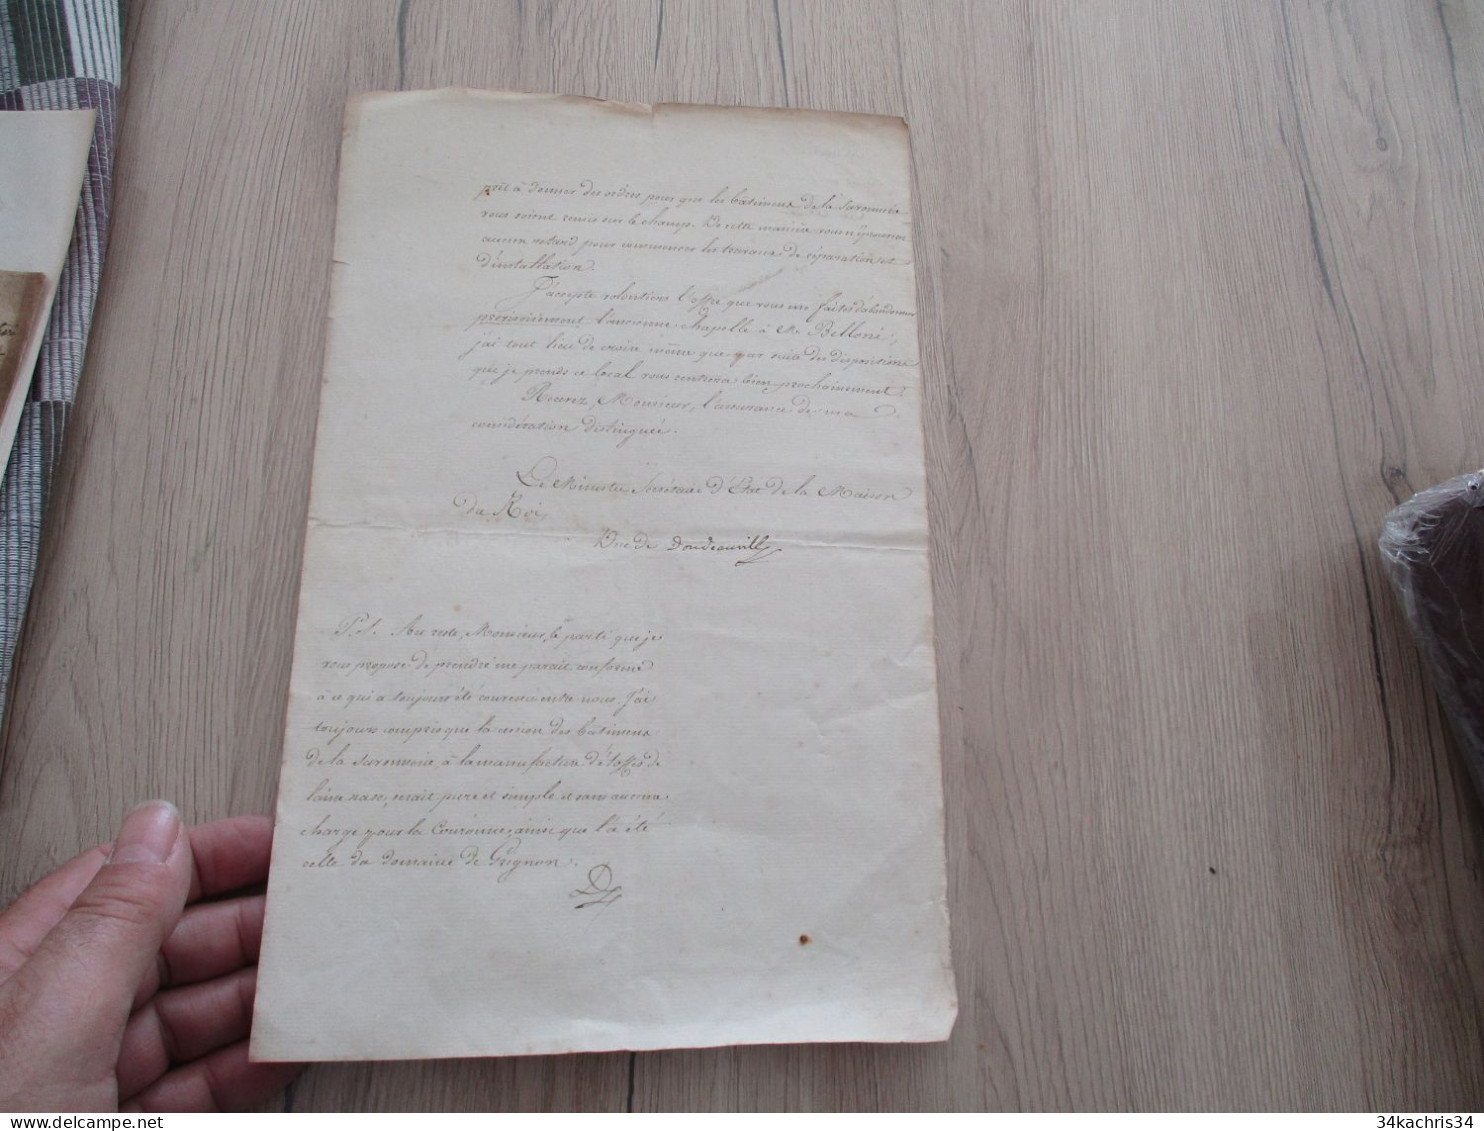 prêt à donner des ordres pour que les bâtimens de la Savonnerie
vous soient remis sur le champ. De cette manière vous n'éprouverez
aucun retard pour commencer les travaux de réparation et
d'installation.
J'accepte volontiers l'offre que vous me faites d'abandonner
provisoirement l'ancienne Chapelle à M. Belloni,
j'ai tout lieu de croire même que par suite des dispositions
que je prends ce local vous rentrera bien prochainement.
Recevez, Monsieur, l'assurance de ma
considération distinguée.
Le Ministre Secrétaire d'Etat de la Maison
du Roi,
Duc de Doudeauville
P.S. Au reste, Monsieur, le parti que je
vous propose de prendre me parait conforme
à ce qui a toujours été convenu entre nous. J'ai
toujours compris que la réunion des bâtimens
de la Savonnerie, à la manufacture d'étoffes de
laine rase, était pure et simple et sans aucune
charge pour la Couronne, ainsi que l'a été
celle du domaine de Grignon.
D
34kachris34
delcampe.net